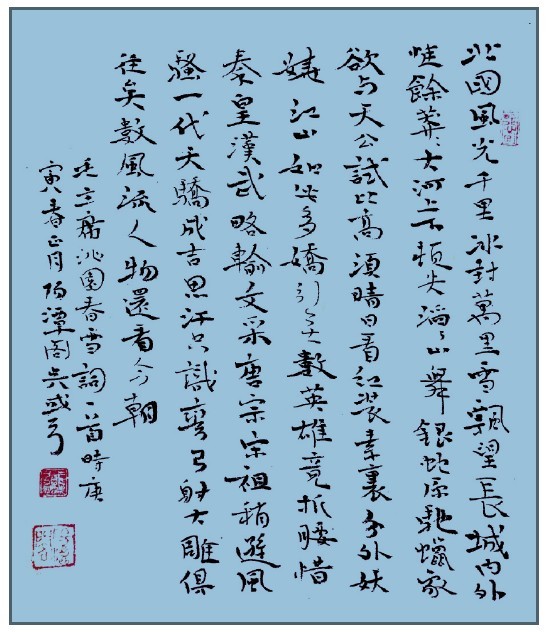 北國風光千里冰封萬里雪飄望長城內外
惟餘莽〻大河上下頓失滔〻山舞銀蛇原馳蠟象
欲与天公試比高須晴日看紅裝素裹分外妖
嬈江山如此多嬌引無數英雄竟折腰惜
秦皇漢武略輸文采唐宗宋祖稍遜風
騷一代天驕成吉思汗只識彎弓射大雕俱
往矣數風流人物還看今朝
毛主席沁園春雪詞一首時庚
寅春正月